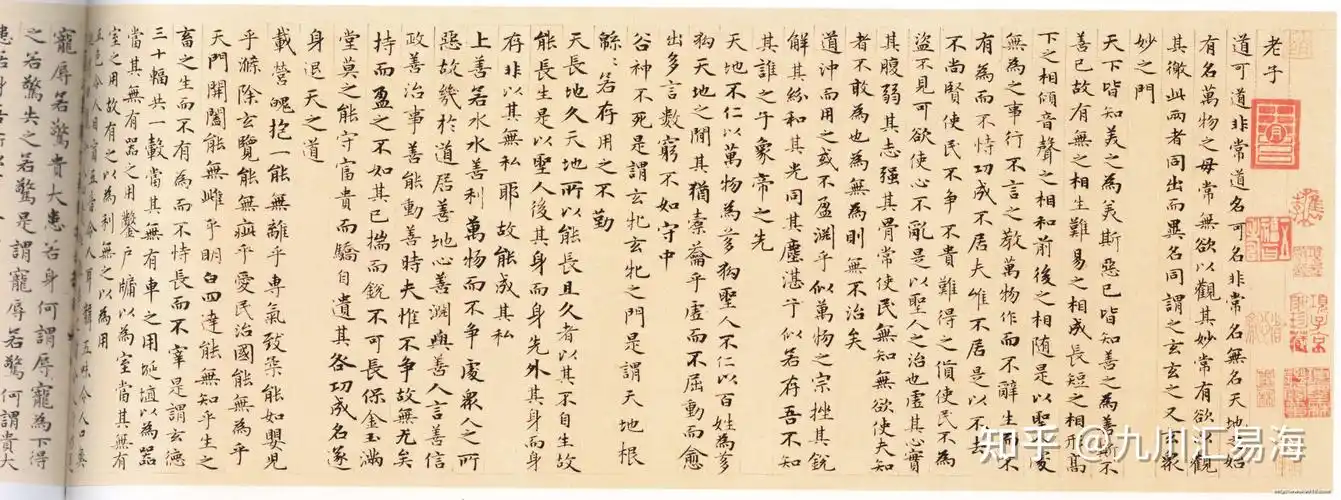 老子
道可道非常道名可名非常名無名天地之始
有名萬物之母常無欲以觀其妙常有欲以觀
其徼此兩者同出而異名同謂之玄玄之又玄衆
妙之門
天下皆知美之為美斯惡已皆知善之為善斯不
善已故有無之相生難易之相成長短之相形高
下之相傾音聲之相和前後之相隨是以聖人處
無為之事行不言之教萬物作而不辭生而不
有為而不恃功成不居夫惟不居是以不去
不尚賢使民不爭不貴難得之貨使民不為
盜不見可欲使心不亂是以聖人之治也虛其心實
其腹弱其志强其骨常使民無知無欲使夫知
者不敢為也為無為則無不治矣
道沖而用之或不盈淵乎似萬物之宗挫其銳
解其紛和其光同其塵湛乎似若存吾不知
其誰之子象帝之先
天地不仁以萬物為芻狗聖人不仁以百姓為芻
狗天地之間其猶橐籥乎虛而不屈動而愈
出多言數窮不如守中
谷神不死是謂玄牝玄牝之門是謂天地根
緜〻若存用之不勤
天長地久天地所以能長且久者以其不自生故
能長生是以聖人後其身而身先外其身而身
存非以其無私耶故能成其私
上善若水水善利萬物而不爭處衆人之所
惡故幾於道居善地心善淵與善人言善信
政善治事善能動善時夫惟不爭故無尤矣
持而盈之不如其已揣而銳不可長保金玉滿
堂莫之能守富貴而驕自遺其咎功成名遂
身退天之道
載營魄抱一能無離乎專氣致柔能如嬰兒
乎滌除玄覽能無疵乎愛民治國能無為乎
天門開闔能無雌乎明白四達能無知乎生之
畜之生而不有為而不恃長而不宰是謂玄德
三十輻共一轂當其無有車之用埏埴以為器
當其無有器之用鑿戶牖以為室當其無有
室之用故有之以為利無之以為用
五色令人目盲五音令人耳聾五味令人口爽
寵辱若驚貴大患若身何謂辱寵為下得
之若驚失之若驚是謂寵辱若驚何謂貴大
患若身吾所
知乎 @九川汇易海